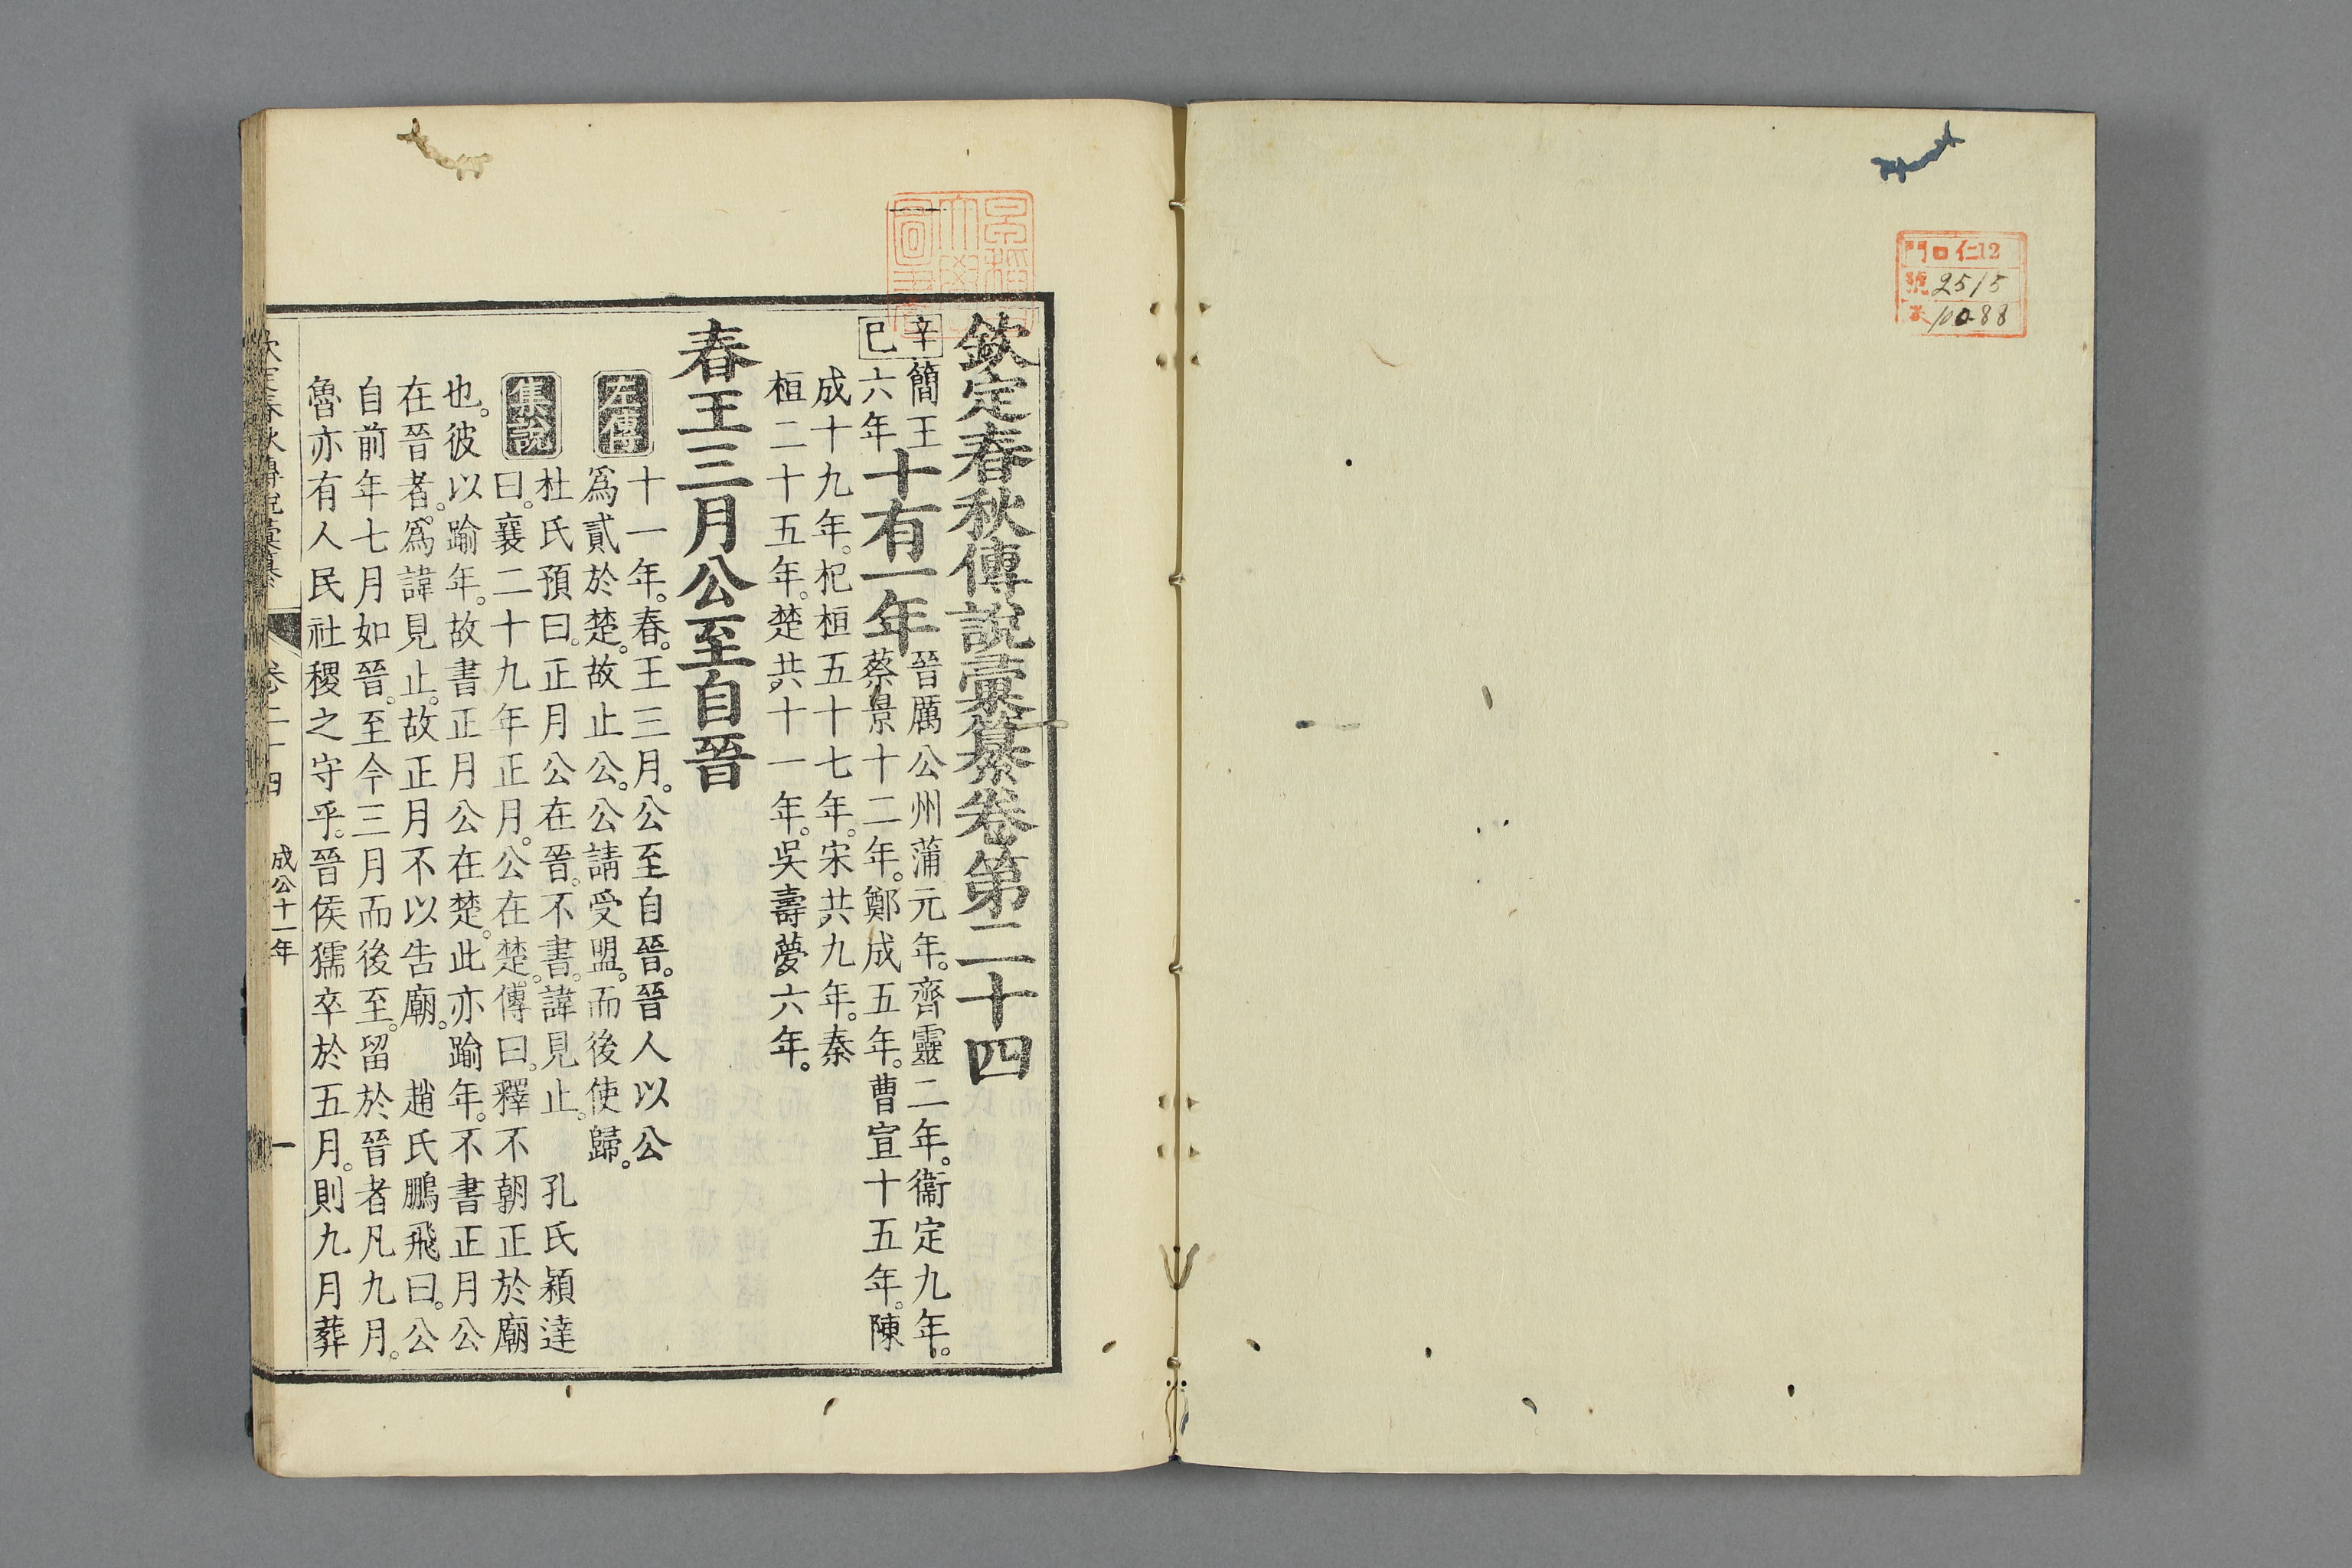 門 ロ仁12
號 2515
巻 10-88
欽定春秋傳說彙纂卷第二十四
辛巳 簡王六年 十有一年 晉厲公州蒲元年。齊靈二年。衞定九年。
蔡景十二年。鄭成五年。曹宣十五年。陳
成十九年。杞桓五十七年。宋共九年。秦
桓二十五年。楚共十一年。吳壽夢六年。
春王三月公至自晉
左傳 十一年。春。王三月。公至自晉。晉人以公
爲貳於楚。故止公。公請受盟。而後使歸。
集說 杜氏預曰。正月公在晉。不書。諱見止。 孔氏穎達
曰。襄二十九年正月。公在楚。傳曰。釋不朝正於廟
也。彼以踰年。故書正月公在楚。此亦踰年。不書正月公
在晉者。爲諱見止。故正月不以告廟。 趙氏鵬飛曰。公
自前年七月如晉。至今三月而後至。留於晉者凡九月。
魯亦有人民社稷之守乎。晉侯獳卒於五月。則九月葬
欽定春秋傳說彙纂 卷二十四 成公十一年 一